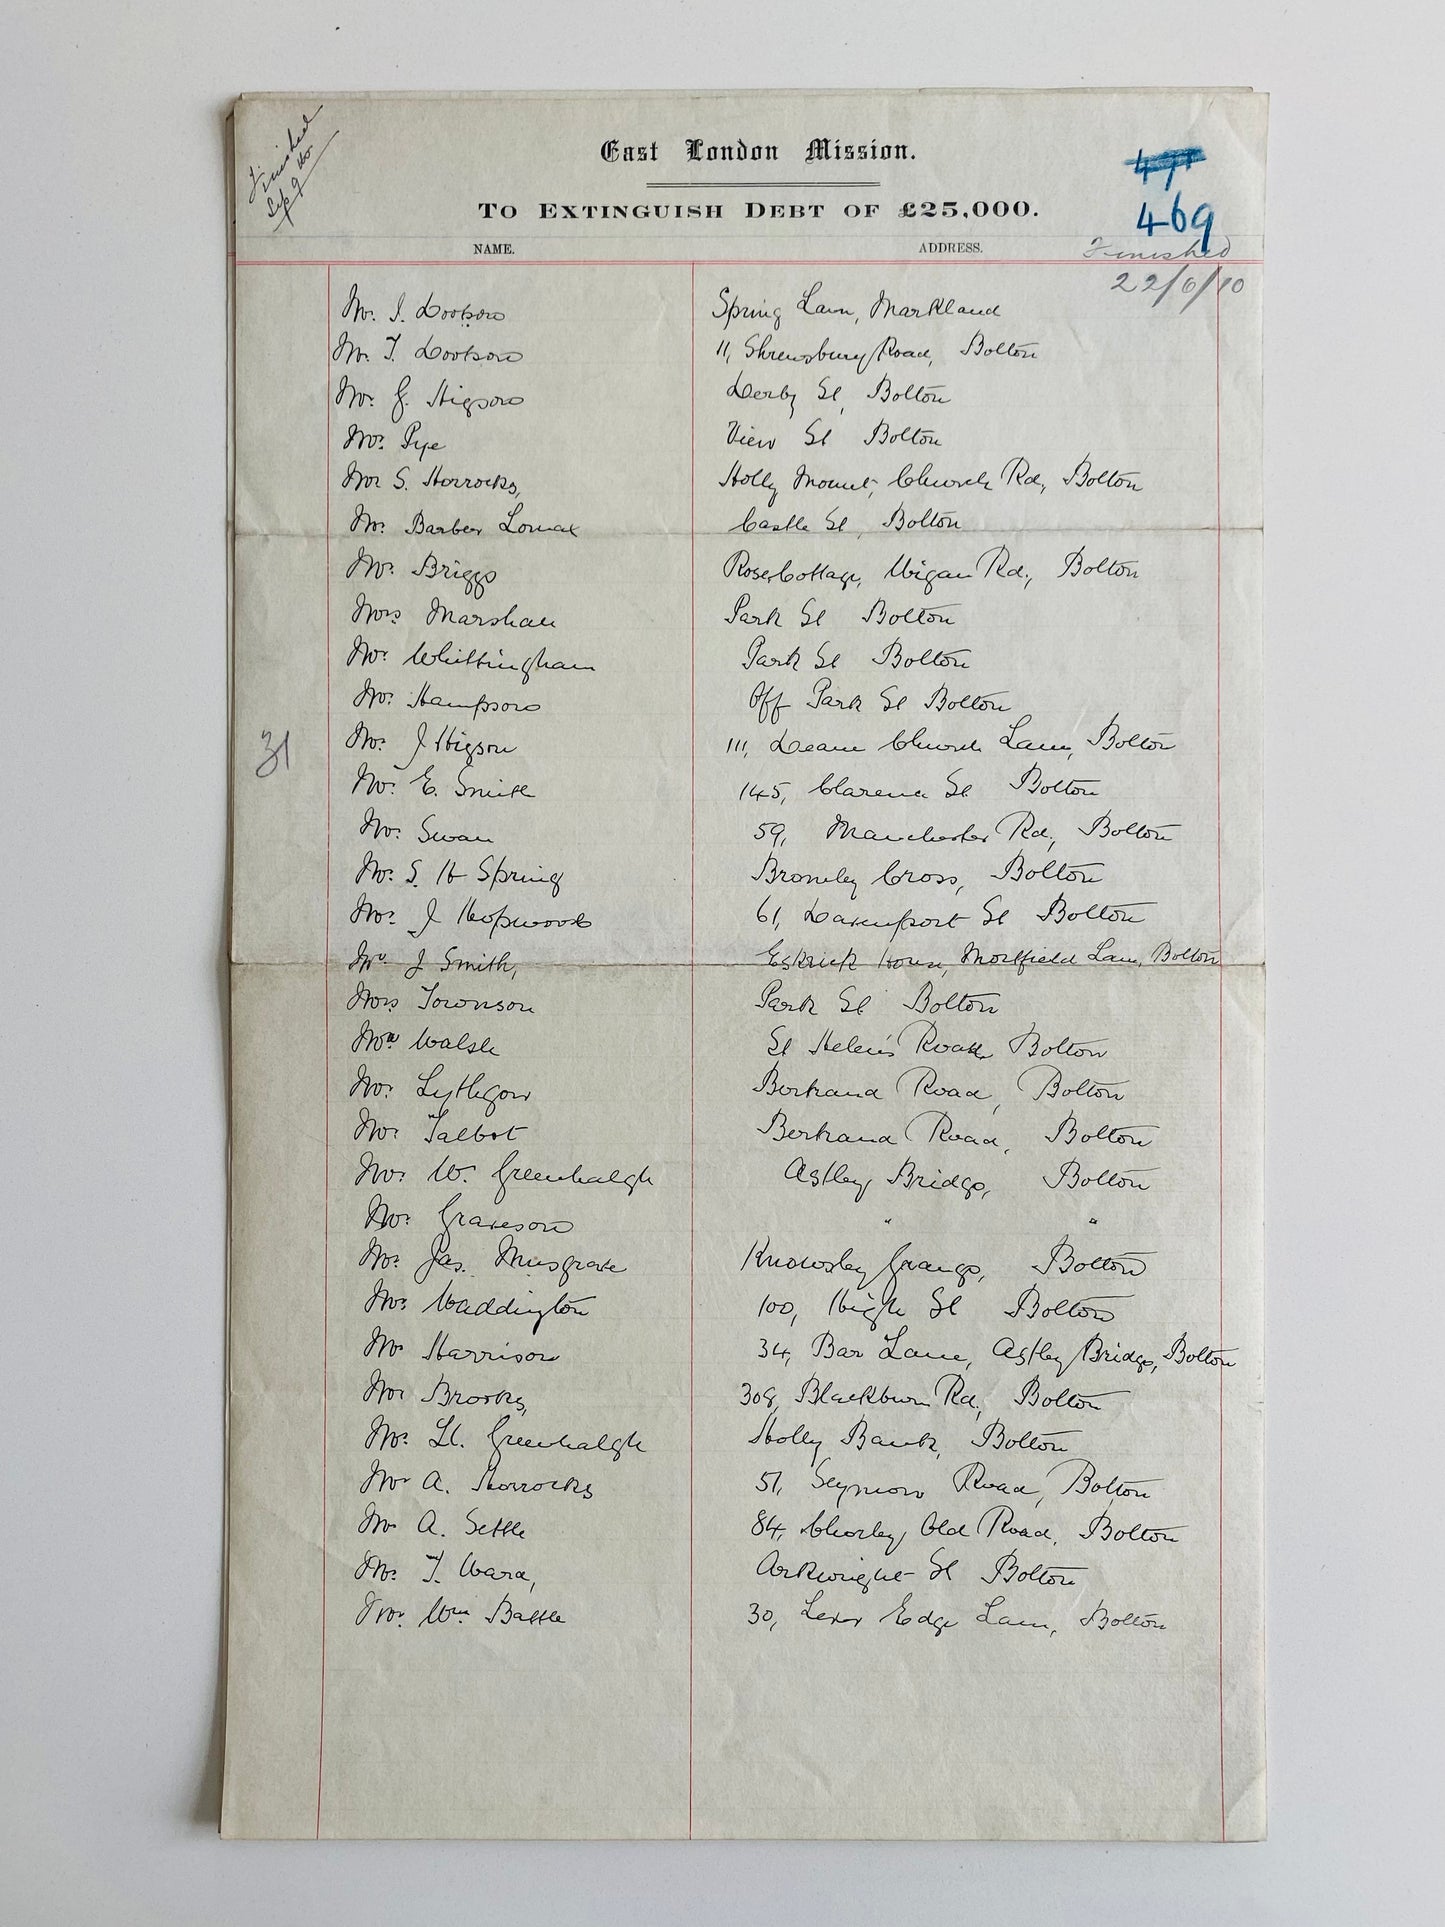 Finished
Sep 9
East London Mission.
471
469
TO EXTINGUISH DEBT OF £25,000.
NAME. ADDRESS. Finished
22/6/10
Mr. I. Dootson Spring Lane, Markland
Mr. T. Dootson 11, Shrewsbury Road, Bolton
Mr. J. Higson Derby St, Bolton
Mr. Pye View St Bolton
Mr S. Horrocks, Holly Mount, Church Rd, Bolton
Mr. Barber Lomax Castle St, Bolton
Mr. Briggs Rose Cottage, Wigan Rd, Bolton
Mrs Marshall Park St Bolton
Mr. Whittingham Park St Bolton
Mr. Hampson Off Park St Bolton
31 Mr. J Higson 111, Deane Church Lane, Bolton
Mr. E. Smith 145, Clarence St Bolton
Mr. Swan 59, Manchester Rd, Bolton
Mr. S. H Spring Bromley Cross, Bolton
Mr. J Hopwood 61, Davenport St Bolton
Mr J Smith, Eskrick House, Mortfield Lane, Bolton
Mrs Townson Park St Bolton
Mr Walsh St Helens Road Bolton
Mr. Lythgow Bertrand Road, Bolton
Mr Talbot Bertrand Road, Bolton
Mr. W. Greenhalgh Astley Bridge, Bolton
Mr. Graveson " "
Mr. Jas. Musgrave Knowsley Grange, Bolton
Mr. Waddington 100, High St Bolton
Mr Harrison 34, Bar Lane, Astley Bridge, Bolton
Mr Brooks, 308, Blackburn Rd, Bolton
Mr. Ll. Greenhalgh Holly Bank, Bolton
Mr A. Horrocks 51, Seymour Road, Bolton
Mr A. Settle 84, Chorley Old Road, Bolton
Mr. T. Ward, Arkwright St Bolton
Mr. Wm Battle 30, Lever Edge Lane, Bolton